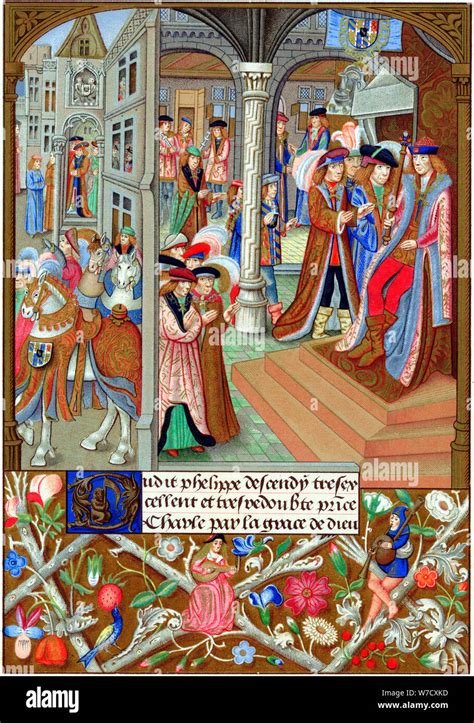 Dudit phelippe descendy tresex
cellent et tresredoubte prince
Charle par la grace de dieu
alamy
alamy stock photo
W7CXKD
www.alamy.com